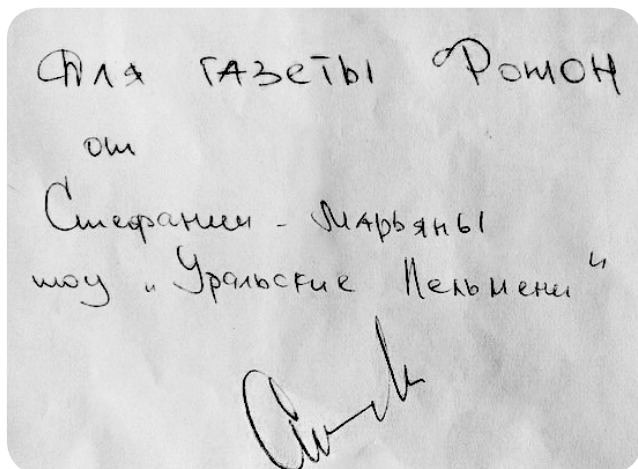 Для газеты Фотон
от
Стефании - Марьяны
шоу „Уральские Пельмени"